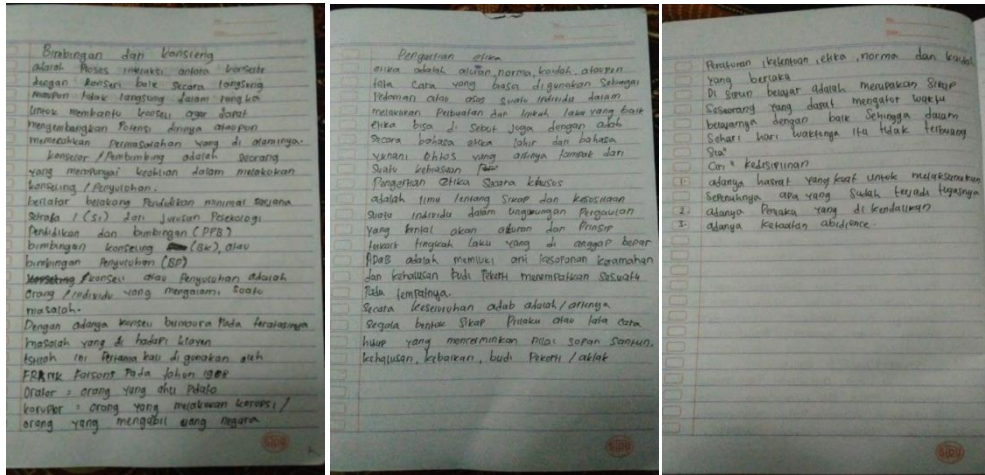 Bimbingan dan konseling
adalah Proses interaksi antara konselor
dengan konseli baik secara langsung
maupun tidak langsung dalam rangka
untuk membantu konseli agar dapat
mengembangkan Potensi dirinya ataupun
memecahkan Permasalahan yang di alaminya.
konselor / Pembimbing adalah seorang
yang mempunyai keahlian dalam melakukan
konseling / Penyuluhan.
berlatar belakang Pendidikan minimal sarjana
Strata 1 (S1) dari Jurusan Psikologi
Pendidikan dan bimbingan (PPB)
bimbingan konseling (BK), atau
bimbingan Penyuluhan (BP)
konseli atau Penyuluhan adalah
orang / individu yang mengalami suatu
masalah.
Dengan adanya konseli bermuara Pada teratasinya
masalah yang di hadapi klayen
istilah ini Pertama kali di gunakan oleh
FRANK Parsons Pada tahun 1908
Orator = orang yang ahli Pidato
koruptor = orang yang melakukan korupsi /
orang yang mengabil uang negara
SIDU
Pengertian etika
etika adalah aturan, norma, kaidah, ataupun
tata Cara yang biasa digunakan Sebagai
Pedoman atau asas suatu individu dalam
melakukan Perbuatan dan tingkah laku yang baik
etika bisa di sebut juga dengan adab
Secara bahasa etika lahir dari bahasa
yunani Ethos yang artinya tampak dari
Suatu kebiasaan
Pengertian etika Secara khusus
adalah Ilmu tentang Sikap dan kesusilaan
Suatu Individu dalam lingkungan Pergaulan
yang kental akan aturan dan Prinsip
terkait tingkah laku yang di anggap benar
ADAB adalah memiliki arti kesopanan keramahan
dan kehalusan budi Pekerti menempatkan Sesuatu
Pada tempatnya.
Secara keseluruhan adab adalah / artinya
Segala bentuk Sikap Prilaku atau tata cara
hidup yang mencerminkan nilai Sopan Santun,
kehalusan, kebaikan, budi Pekerti / aklak
SIDU
Peraturan, ketentuan, etika, norma dan kaidah
yang berlaku
Di siplin belajar adalah merupakan Sikap
Seseorang yang dapat mengatur waktu
belajarnya dengan baik Sehingga dalam
Sehari hari waktunya itu tidak terbuang
Sia"
Ciri" kedisiplinan
1. adanya hasrat yang kuat untuk melaksanakan
Sepenuhnya apa yang Sudah terjadi tugasnya
2. adanya Perilaku yang di kendalikan
3. adanya ketaatan abidience.
SIDU